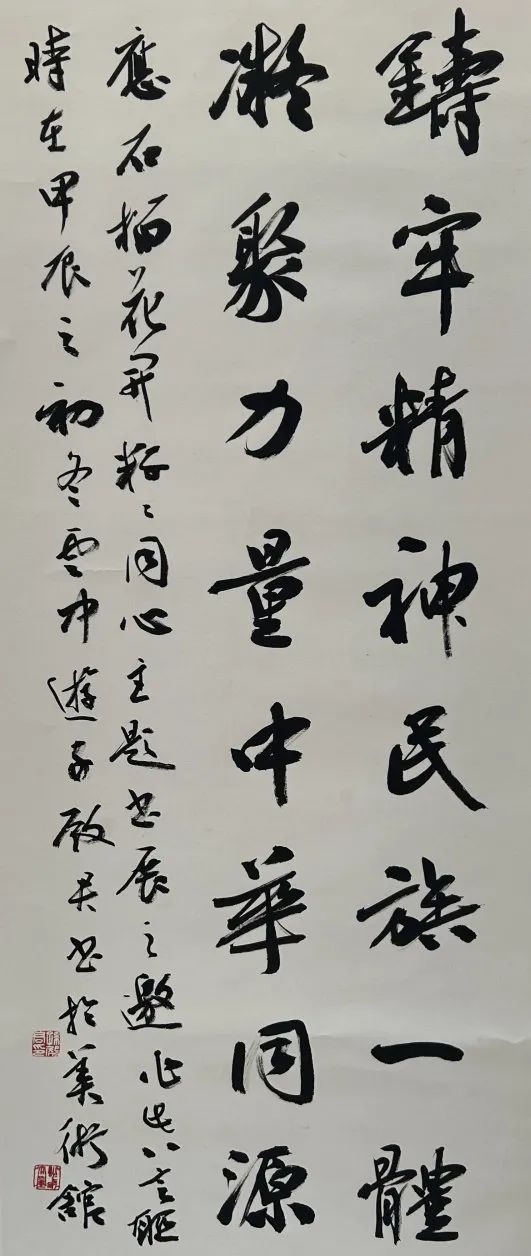 鑄牢精神民族一體
凝聚力量中華同源
應石榴花開籽籽同心主題书展之邀作此八言联
時在甲辰之初冬雲中遊子啟君书於美術館